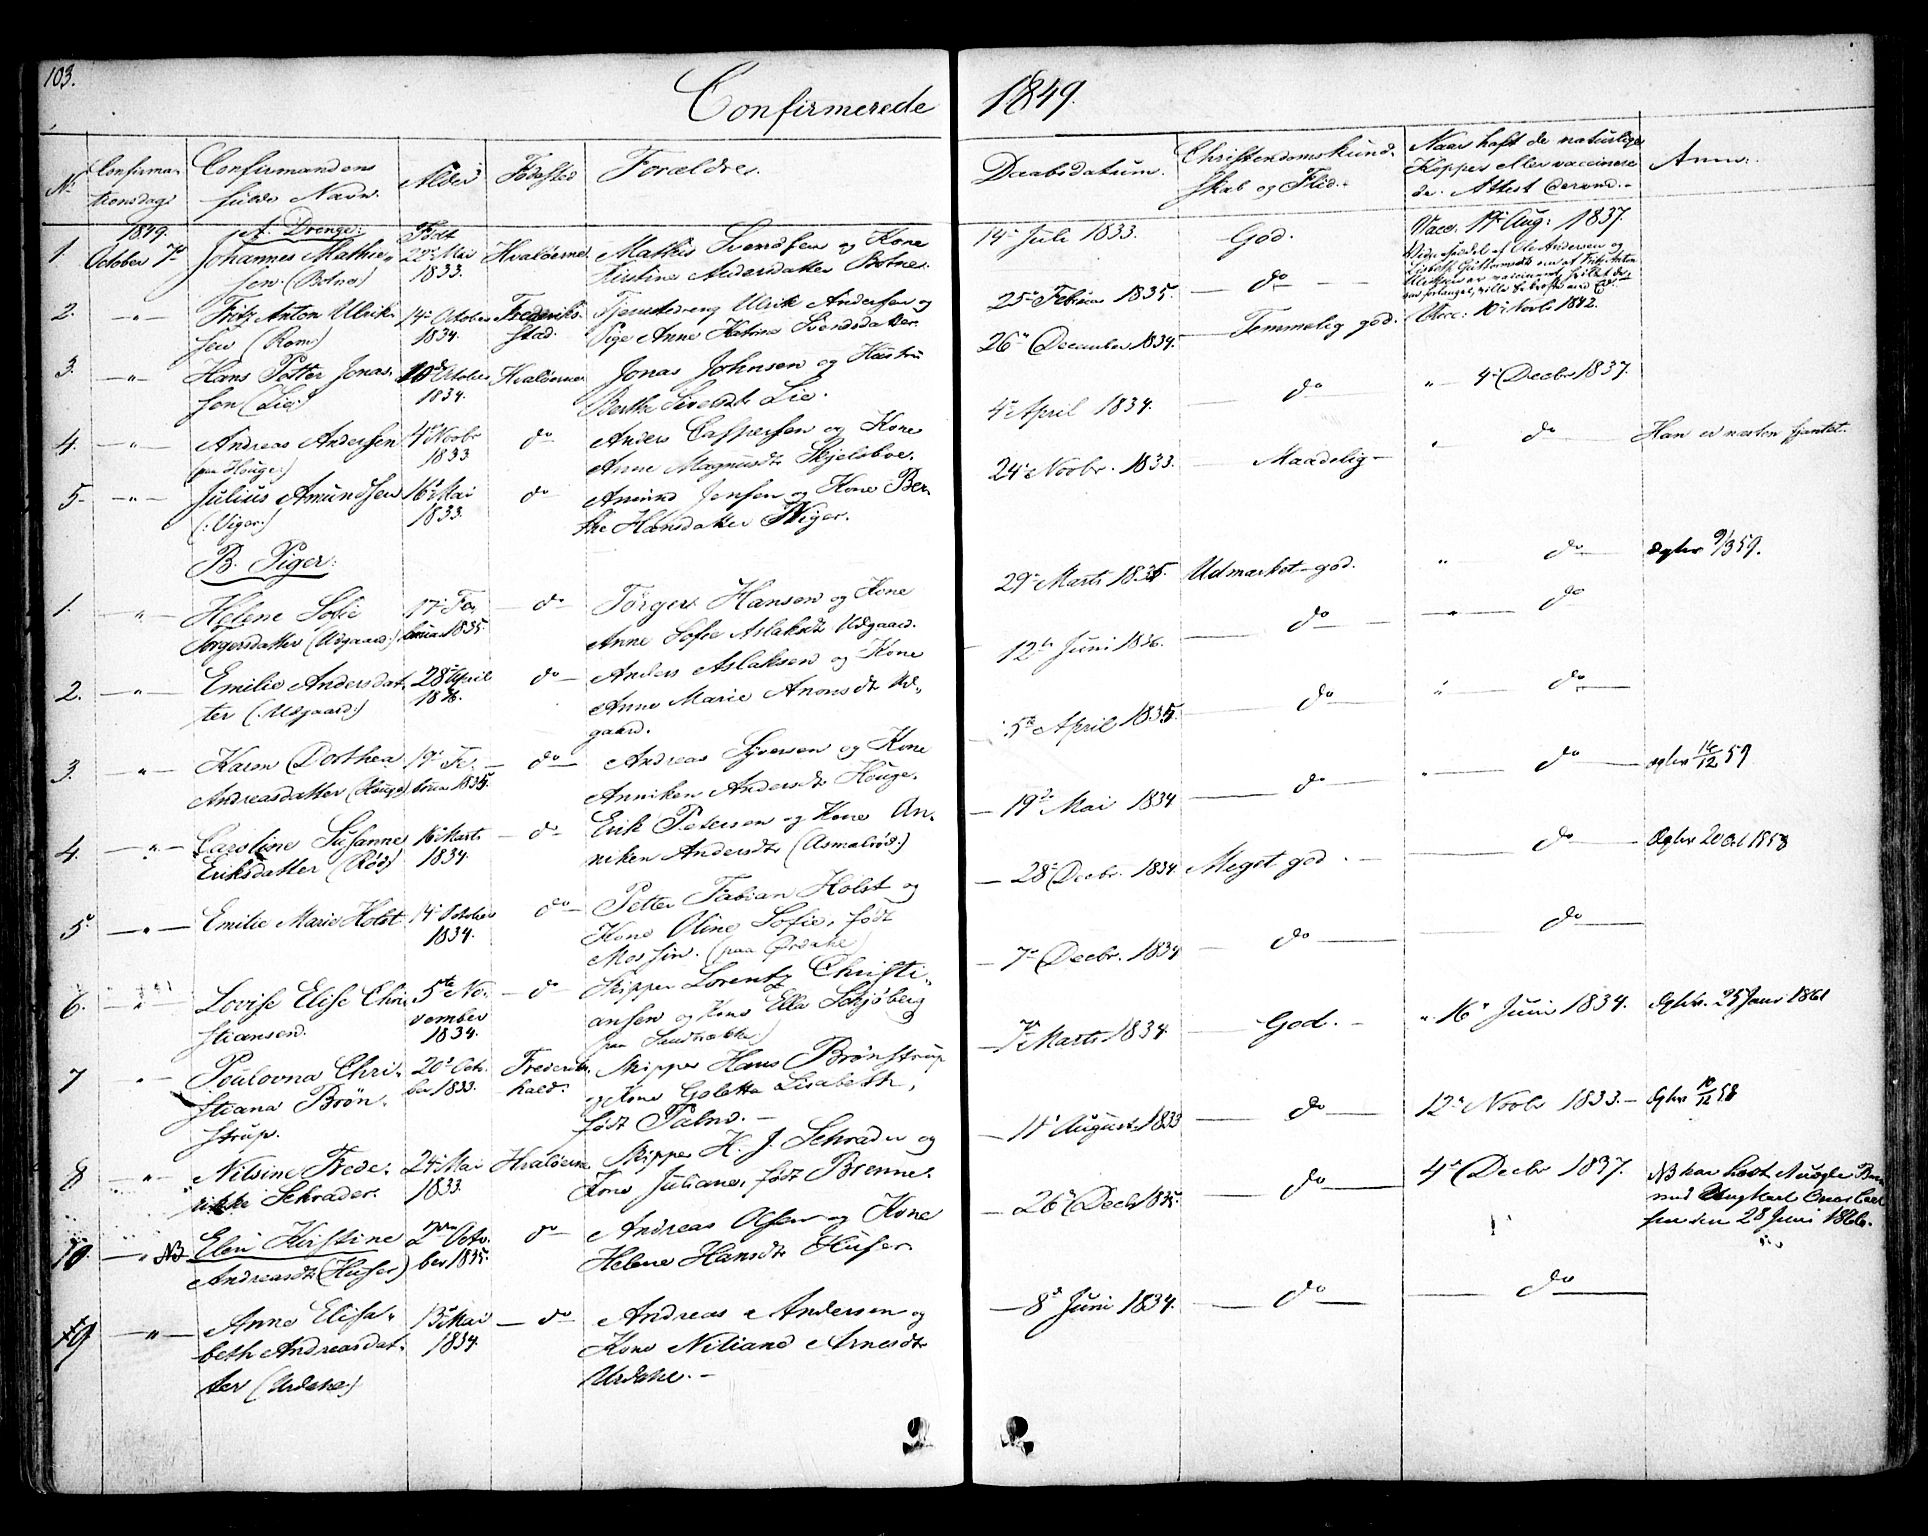 103.
Confirmerede 1849.
No
Confirma-
tionsdag:
Confirmandens
fulde Navn.
Alder
Fødested
Forældre.
Daabsdatum.
Christendomskund-
skab og Flid.
Naar haft de naturlige
Kopper eller vaccinere
de. Attest derom.
Anm:
1849.
A. Drenge:
Født
1. October 7de Johannes Mathi-
sen (Botne)
1833.
Hvaløerne
Mathis Svendsen og Kone
Kirstine Andersdatter Botne.
14de Juli 1833.
God.
Vacc. Aug: 1837.
2. —"— Fritz Anton Ulrik-
sen (Rom)
14de October
1834.
Frederik-
stad.
Tjenestedreng Ulrik Andersen og
Pige Anne Katrine Svendsdatter.
25de Februar 1835.
do
Vacc: 10de Novbr 1842.
3. —"— Hans Petter Jonas-
sen (Lie)
October
1834.
Hvaløerne
Jonas Johnsen og Hustru
Berthe Siversdt Lie.
26de December 1834.
Temmelig god.
" 4de Decbr 1837.
4. —"— Andreas Andersen
(paa Houge:)
4de Novbr
1833
do
Anders Caspersen og Kone
Anne Magnusdt Skjelsboe.
4de April 1834.
do
" do
Han er næsten fjantet.
5. —"— Julius Amundsen
(:Viger:)
16de Mai
1833.
do
Amund Jensen og Kone Ber-
the Hansdatter Viger.
24de Novbr. 1833.
Maadelig
B. Piger:
1. " Helene Sofie
Torgersdatter (Utgaard:)
17de Fe-
bruar 1835.
do
Torger Hansen og Kone
Anne Sofie Aslaksdt Utgaard.
29de Marts 1835.
Udmærket god.
" do
Øgtev 9/3 59.
2. —"— Emilie Andersdat-
ter (:Utgaard:)
28de April
1836.
do
Anders Aslaksen og Kone
Anne Marie Anonsdt Ut-
gaard.
12te Juni 1836.
do
" do
3. —"— Karen Dorthea
Andreasdatter (Houge)
19de Fe-
bruar 1835.
do
Andreas Syversen og Kone
Anniken Andersdt Houge.
5te April 1835
do
" do
4. —"— Caroline Susanne
Eriksdatter (Rød)
16de Marts
1834.
do
Erik Petersen og Kone An-
niken Andersdt (Asmalrød:)
19de Mai 1834
do
" do
5. —"— Emilie Marie Holst
14de October
1834.
do
Petter Fabian Holst og
Kone Oline Sofie, født
Mossin. (paa Ørdahl)
28de Decbr. 1834
Meget god.
do
Øgtev 20 Oct 1858
6. " Lovise Elise Chri-
stiansen.
5te No-
vember
1834.
do
Skipper Lorentz Christi-
ansen og Kone Ella Schjøberg
7de Decbr. 1834
do
do
7 " Poulovna Chri-
stiana Brøn-
strup.
20de Octo-
ber 1833.
Frederiks-
hald:
Skipper Hans Brønstrup
og Kone Goletta Lisabeth,
født Palmd.
7de Marts 1834.
God.
" 16de Juni 1834.
Øgtev. 25 Janr 1861
8 —"— Nilsine Frede-
rikke Schrader.
24de Mai
1833.
Hvaløerne
Skipper H. J. Schrader og
Kone Juliane, født Brenne.
11te August 1833
do
12te Novbr 1833.
10. —"— NB Elen Kirstine
Andreasdt (Huser)
2den Octo-
ber 1835.
do
Andreas Olsen og Kone
Helene Hansdt Huser.
26de Decb 1835.
do
4de Decbr 1837.
28 Juni 1866.
—"— Anne Elisa-
beth Andreasdat-
ter (Urdahl)
13de Mai
1834.
do
Andreas Andersen og
Kone Niliane Arnesdt
Urdahl.
8de Juni 1834.
do
do